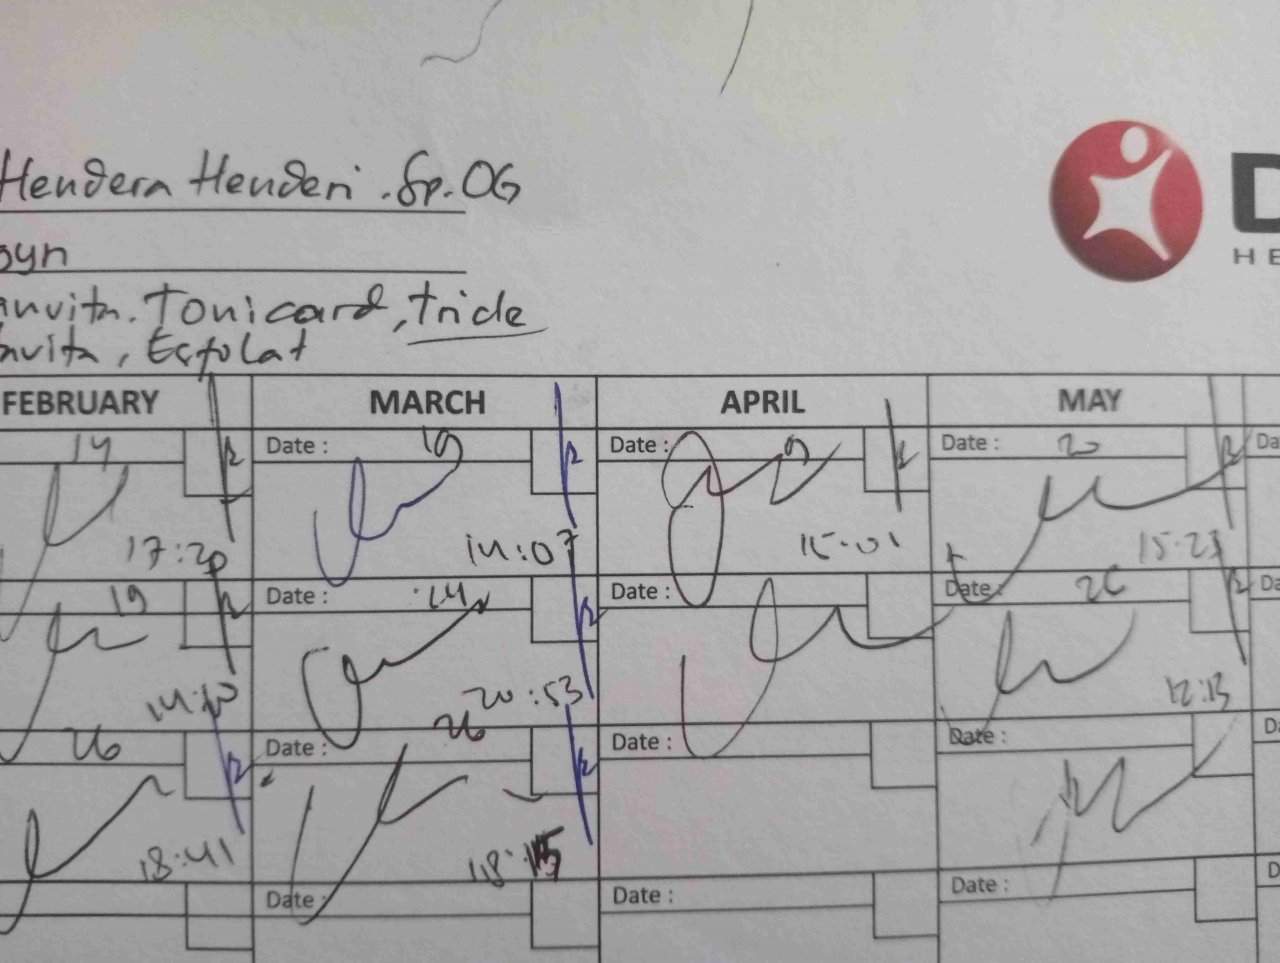 Hendera Henderi .Sp.OG
D
HE
Tonicard, tricle
Esfolat
FEBRUARY MARCH APRIL MAY
14 Date : 19 Date : 9 Date : 20 Da
17:20 14:07 15.01 15.23
19 Date : 24 Date : Date : 26 Da
20:53 12:13
26 Date : 26 Date : Date : D
18:41 18:15
Date : Date : Date : D